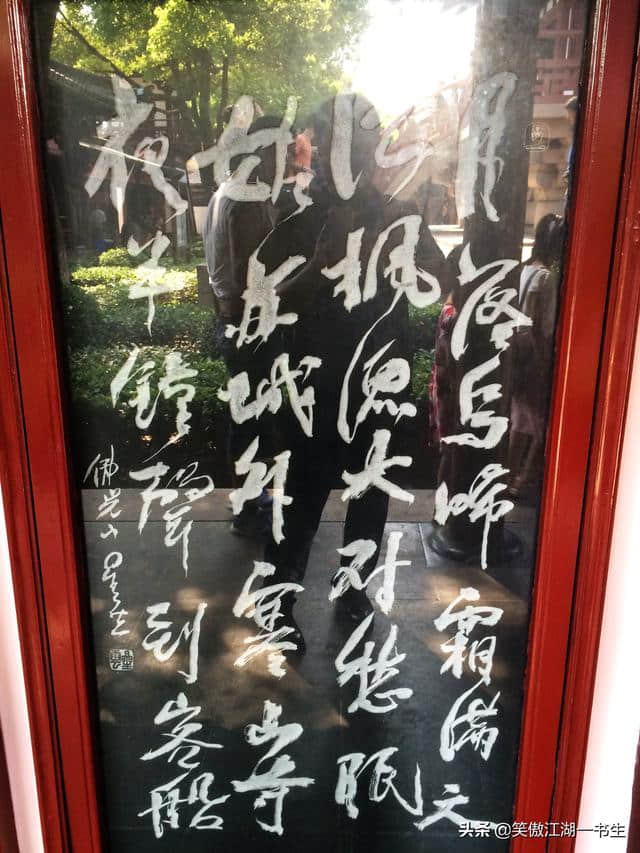 月落烏啼霜满天
江楓漁火对愁眠
姑蘇城外寒山寺
夜半鐘聲到客船
佛光山星雲
头条 @笑傲江湖一书生